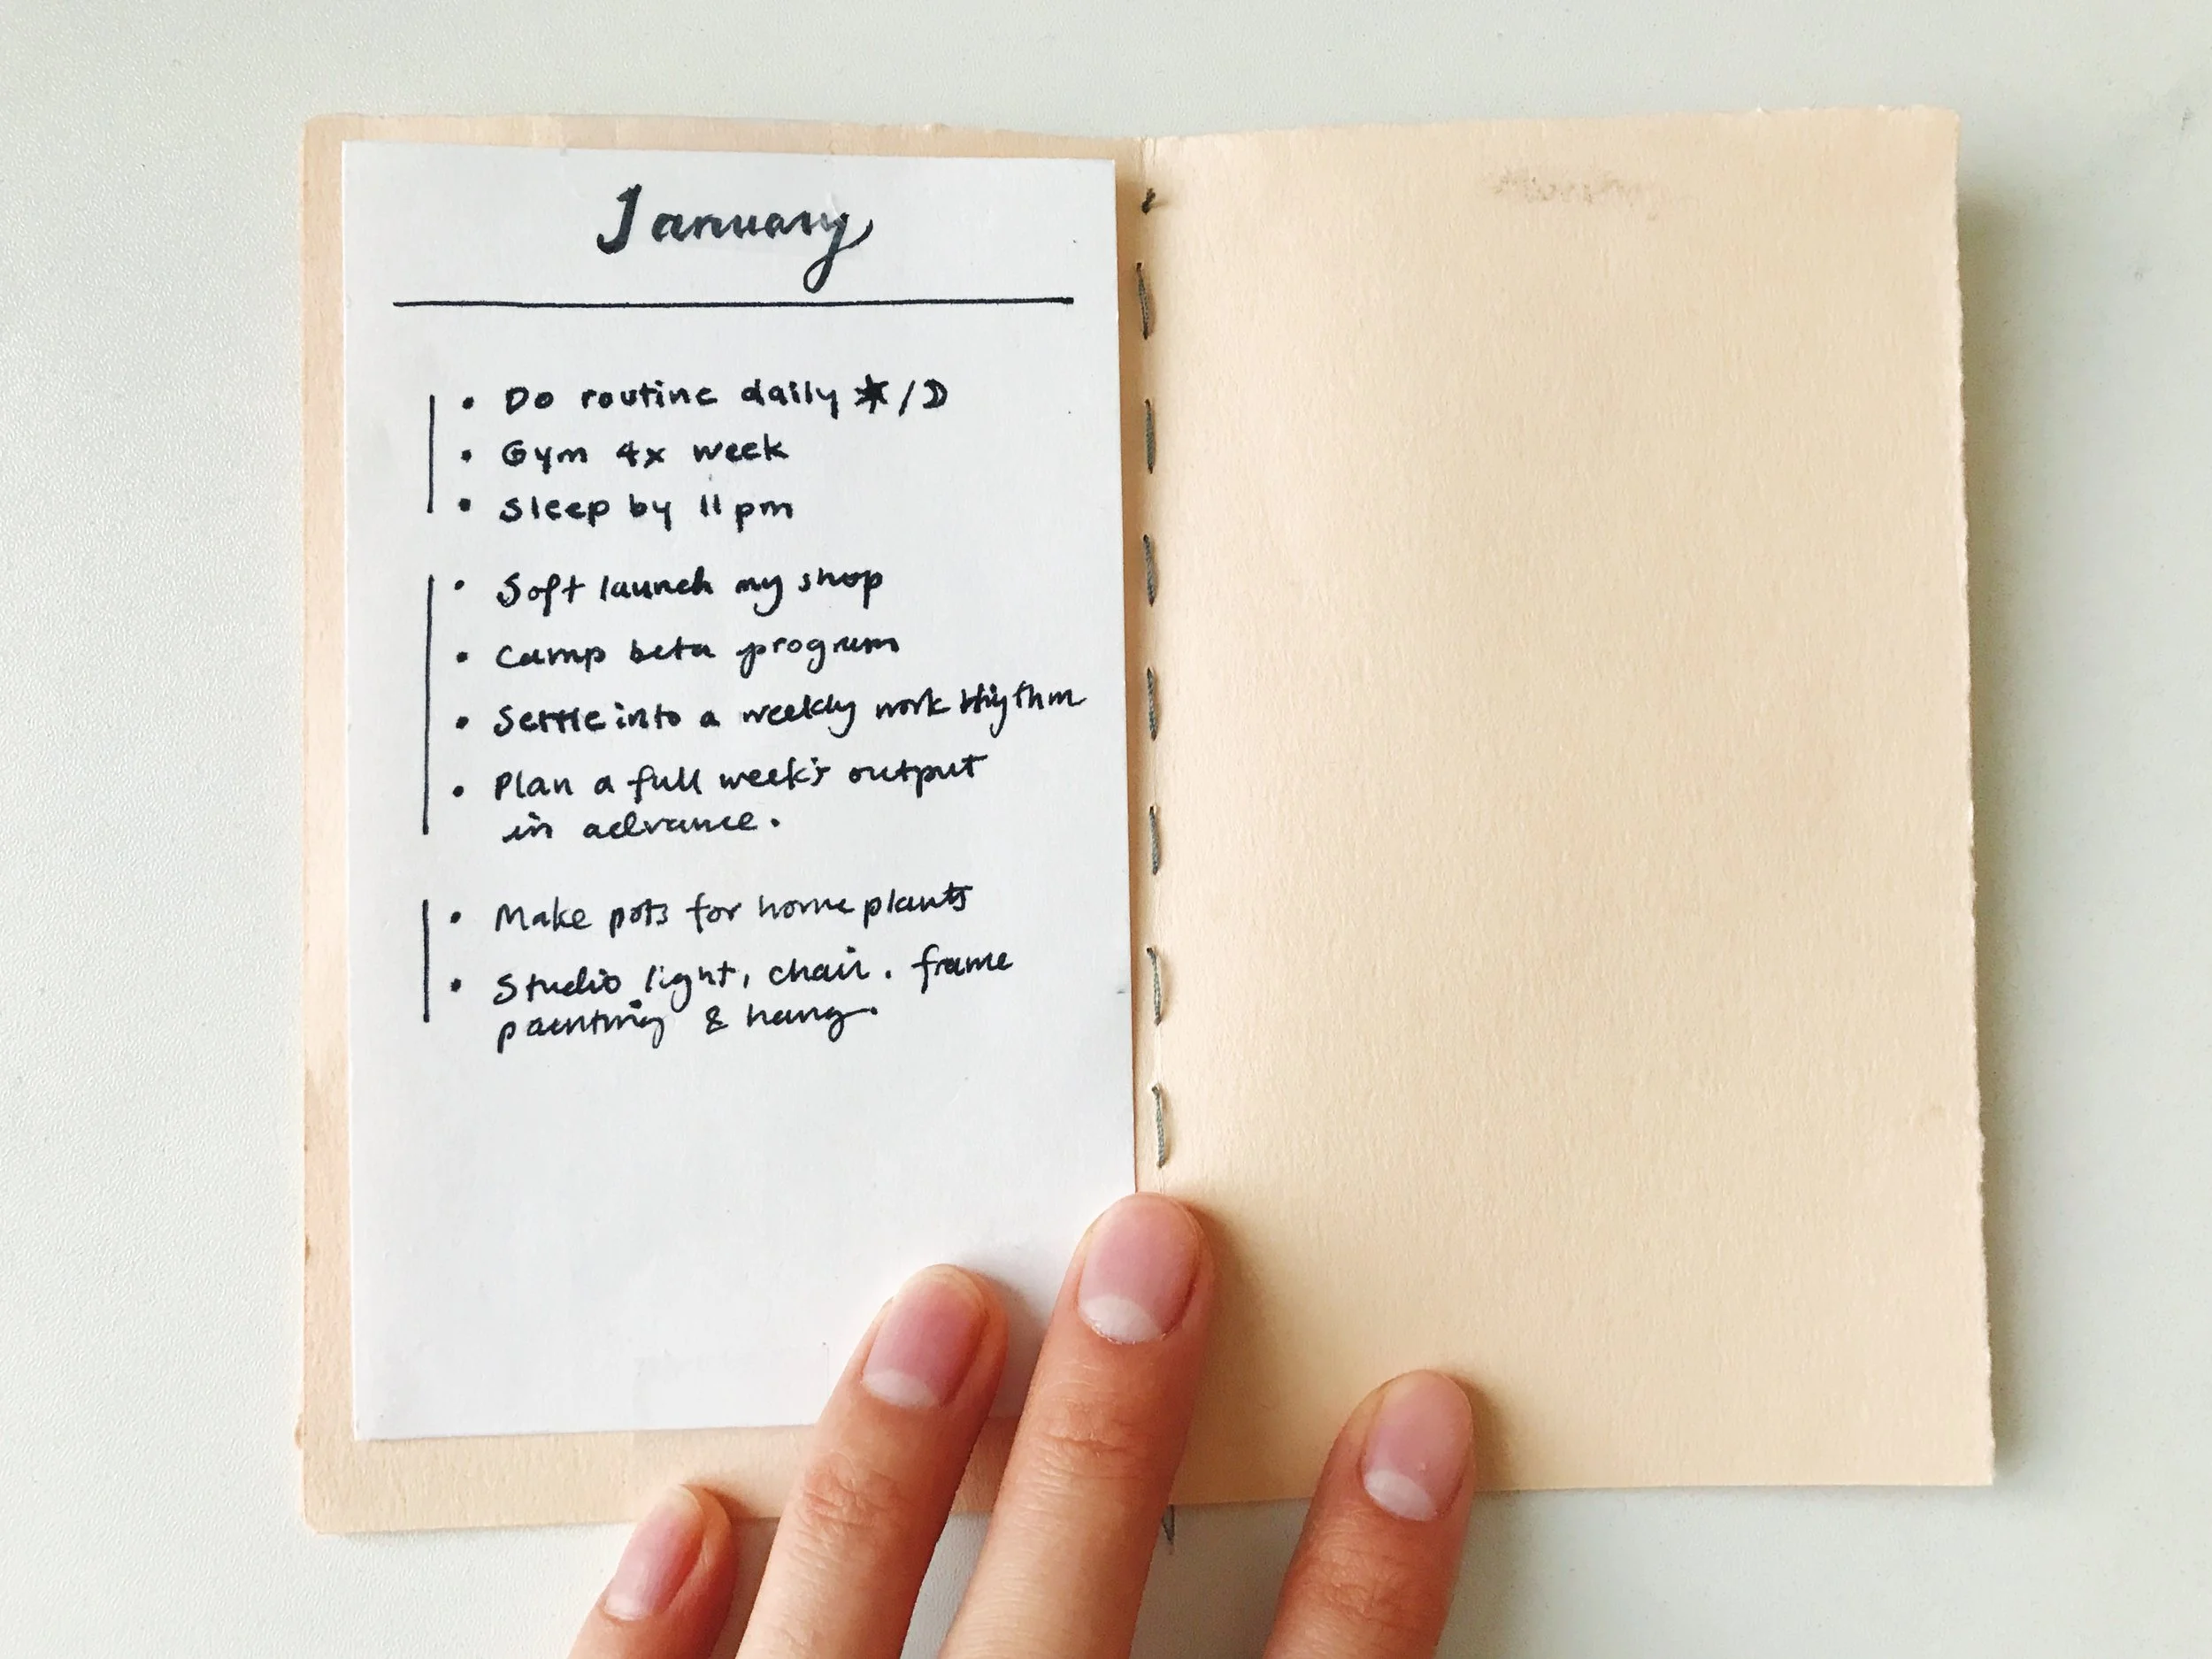 January
• Do routine daily ☀/☽
• Gym 4x week
• Sleep by 11pm
• Soft launch my shop
• Camp beta program
• Settle into a weekly work rhythm
• Plan a full week's output
in advance.
• Make pots for home plants
• Studio light, chair. frame
painting & hang.